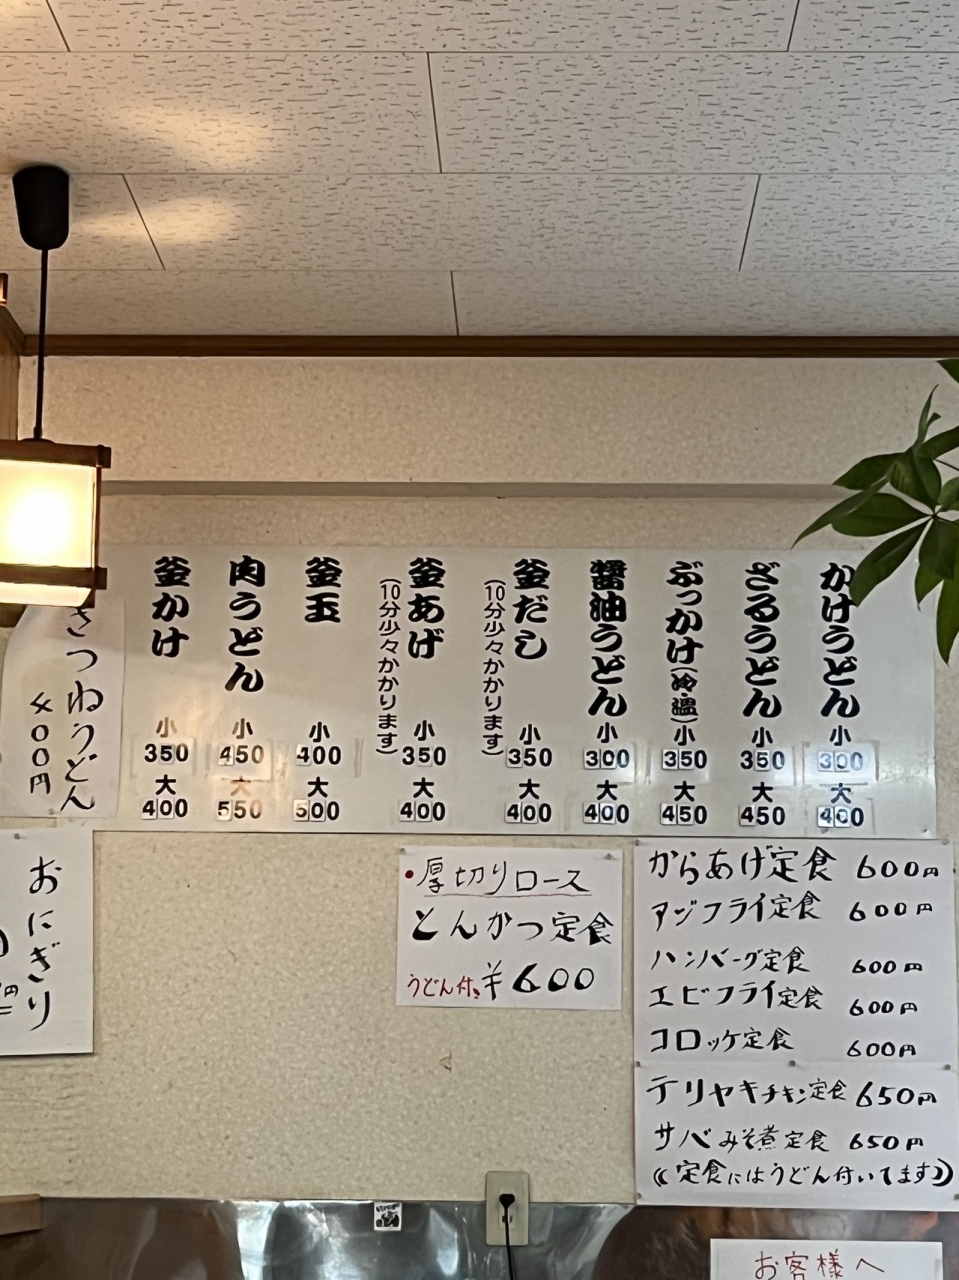 かけうどん
小
300
大
400
ざるうどん
小
350
大
450
ぶっかけ(冷・温)
小
350
大
450
醤油うどん
小
300
大
400
釜だし
(10分少々かかります)
小
350
大
400
釜あげ
(10分少々かかります)
小
350
大
400
釜玉
小
400
大
500
肉うどん
小
450
大
550
釜かけ
小
350
大
400
きつねうどん
400円
からあげ定食 600円
アジフライ定食 600円
ハンバーグ定食 600円
エビフライ定食 600円
コロッケ定食 600円
テリヤキチキン定食 650円
サバみそ煮定食 650円
((定食にはうどん付いてます))
・厚切りロース
とんかつ定食
うどん付き ¥600
おにぎり
円
お客様へ